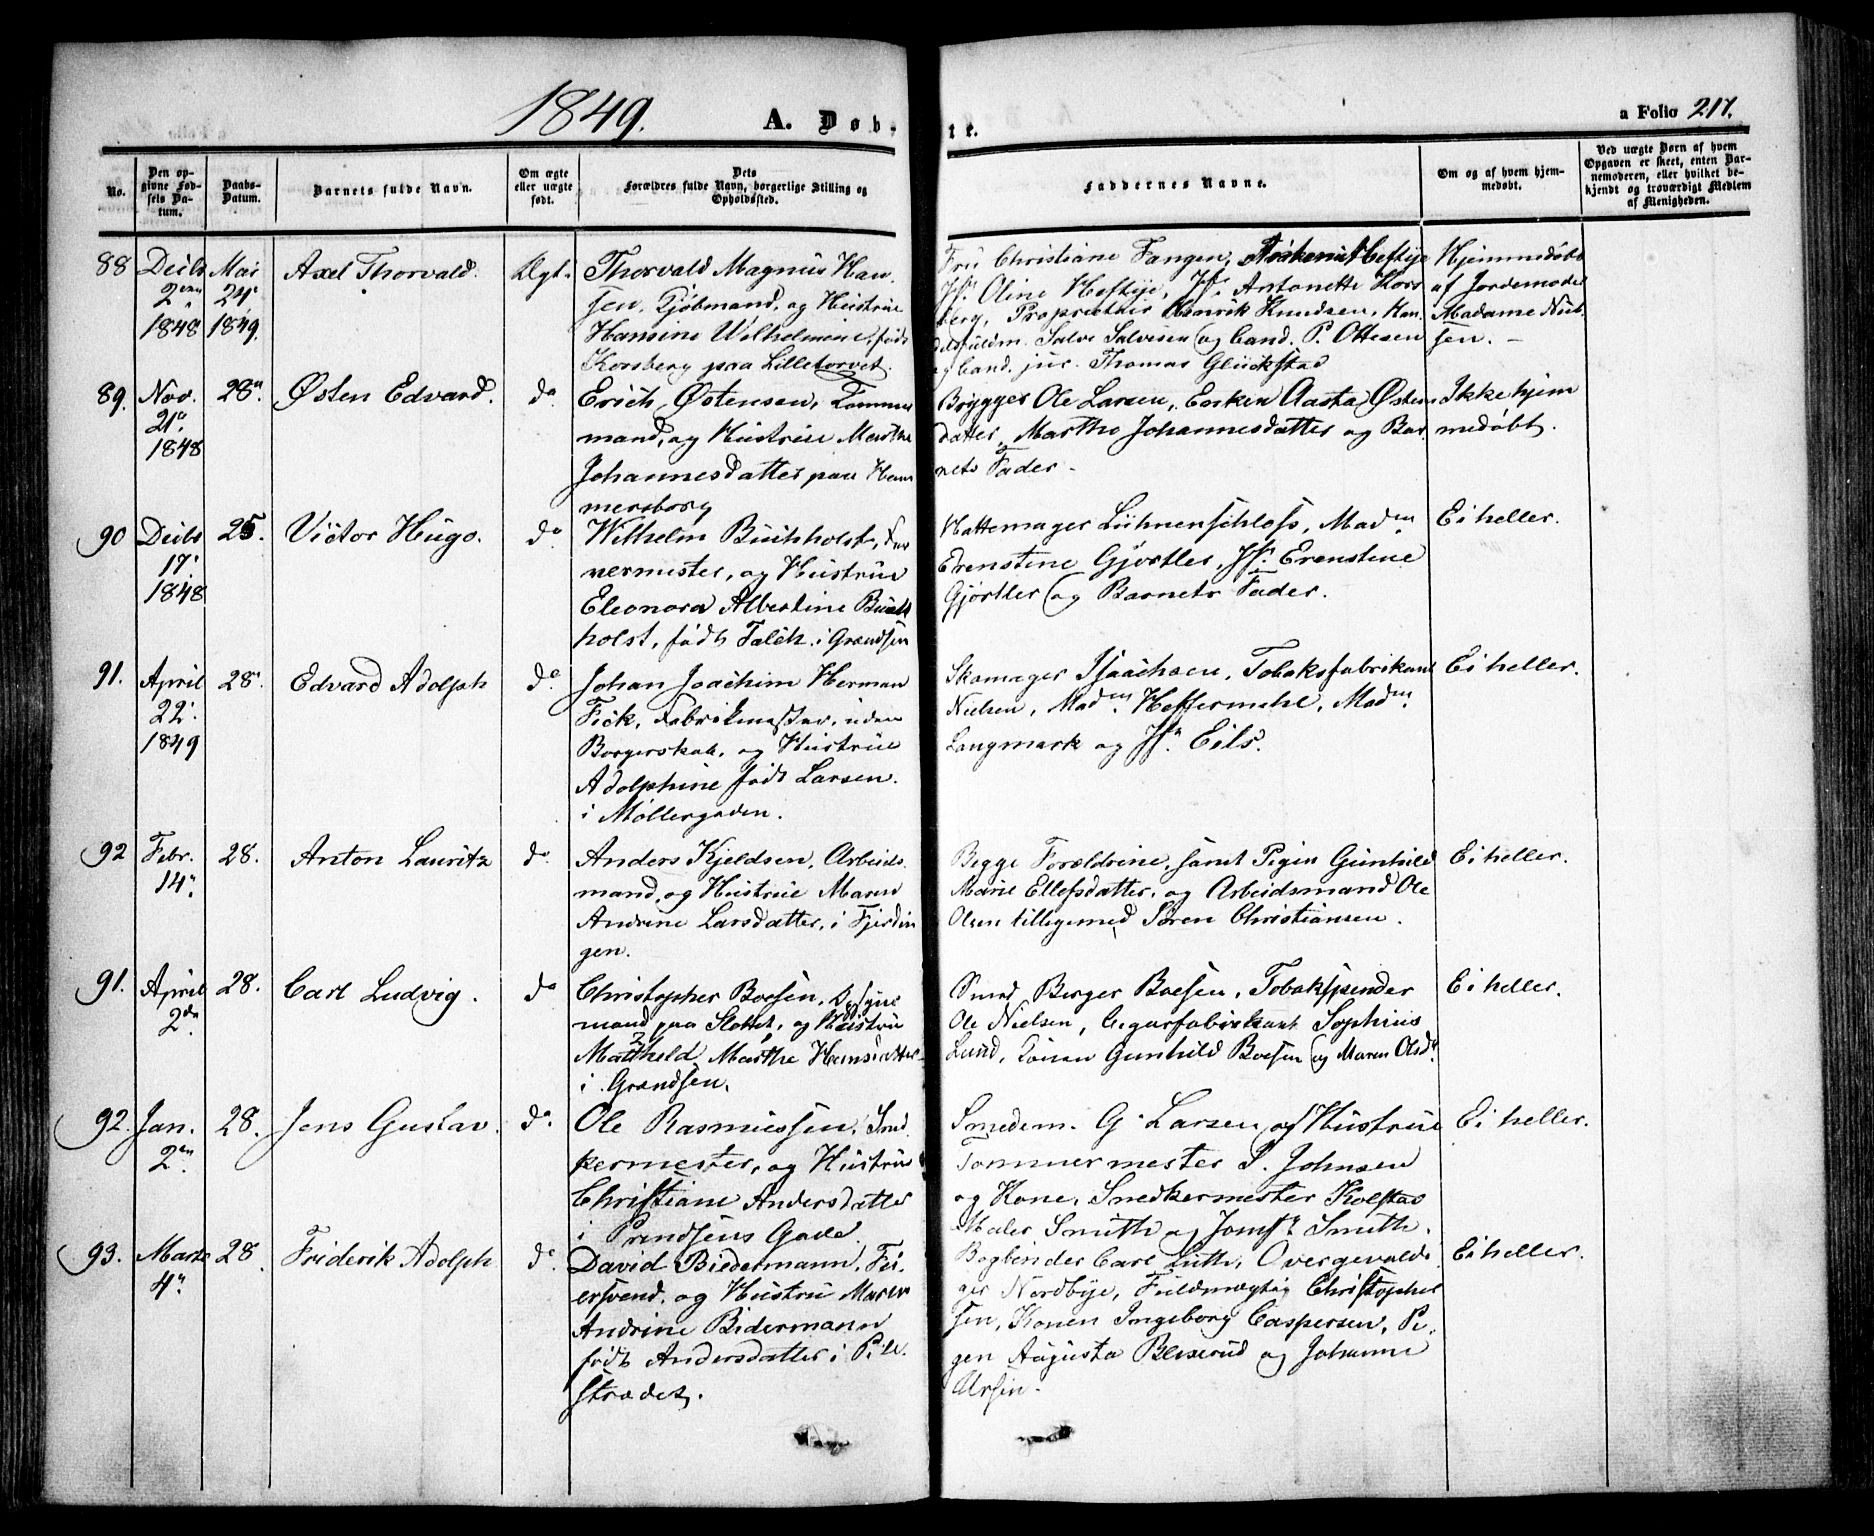 1849.
A. Døb-
te.
a Folio 217.
No.
Den op-
givne Fød-
sels Da-
tum.
Daabs-
Datum.
Barnets fulde Navn.
Om ægte
eller uægte
født.
Dets
Forældres fulde Navn, borgerlige Stilling og
Opholdssted.
Faddernes Navne.
Om og af hvem hjem-
medøbt.
Ved uægte Børn af hvem
Opgaven er skeet, enten Bar-
nemoderen, eller hvilket be-
kjendt og troværdigt Medlem
af Menigheden.
88
Decbr
2den
1848
Mai
24
1849.
Axel Thorvald.
Ægt.
Thorvald Magnus Han
sen, Kjøbmand, og Hustrue
Hansine Wilhelmine, født
Korsberg paa Lilletorvet.
Fru Christiane Fangen, Frøken Heftye
Jfr. Oline Heftye, Jfr. Antonette Kors
berg, Proprietair Henrik Knudsen, Han
delsfuldm. Salve Salvesen og Cand. P. Ottesen
og Cand. jur. Thomas Glückstad
Hjemmedøbt
af Jordemoder
Madame Niel
sen. -
89.
Nov.
21
1848
28
Østen Edvard.
do
Erich Østensen, Tømmer
mand, og Hustrue Marthe
Johannesdatter paa Ham
mersborg
Brygger Ole Larsen, Enken Aasta Østens
datter, Marthe Johannesdatter og Bar
nets Fader -
Ikke hjem
medøbt.
90
Decbr
17
1848
25.
Victor Hugo.
do
Wilhelm Buchholst, Far
vermester, og Hustrue
Eleonora Albertine Buch
holst, født Falch. i Grændsen
Hattemager Lühnenschloss, Madm
Erenstine Gjørtler, Jfr. Erenstine
Gjørtler og Barnets Fader.
Ei heller.
91.
April
22
1849
28
Edvard Adolph
do
Johan Joachim Herman
Fick, Fabrikmester, uden
Borgerskab, og Hustrue
Adolphine født Larsen.
i Møllergaden.
Skomager Isaachsen, Tobaksfabrikant
Nielsen, Madm. Heffermehl, Madm.
Langmark og Jfr. Eils.
Ei heller.
92
Febr.
14
28.
Anton Lauritz
do
Anders Kjeldsen, Arbeids
mand, og Hustrue Maren
Andrine Larsdatter, i Fjerdin
gen.
Begge Forældrene, samt Pigen Gunhild
Marie Ellefsdatter, og Arbeidsmand Ole
Olsen tilligemed Søren Christiansen.
Ei heller.
91.
April
2den
28.
Carl Ludvig.
do
Christopher Boesen, Opsyns
mand paa Slottet, og Hustrue
Mathhild Marthe Hansdatter
i Grændsen.
Smed Berger Boesen, Tobakspinder
Ole Nielsen, Cigarfabrikant Sophius
Lund, Konen Gunhild Boesen og Maren Olsdr.
Ei heller.
92.
Jan.
2den
28.
Jens Gustav.
do
Ole Rasmussen, Sned
kermester, og Hustrue
Christiane Andersdatter
i Prindsens Gade.
Smedem. G. Larsen og Hustrue
Tømmermester S. Johnsen
og Kone, Snedkermester Kolstad
Maler Smith og Jomfr. Smith.
Ei heller.
93.
Marts
4
28
Friderik Adolph
do
David Bidermann, Fei
ersvend, og Hustru Maren
Andrine Bidermann
født Andersdatter i Pile
strædet.
Bogbinder Carl Lüth, Overgevaldi
ger Nordbye, Fuldmægtig Christopher
sen, Konen Ingeborg Caspersen, Pi
gen Augusta Bleserud og Johanne
Ursin.
Ei heller.